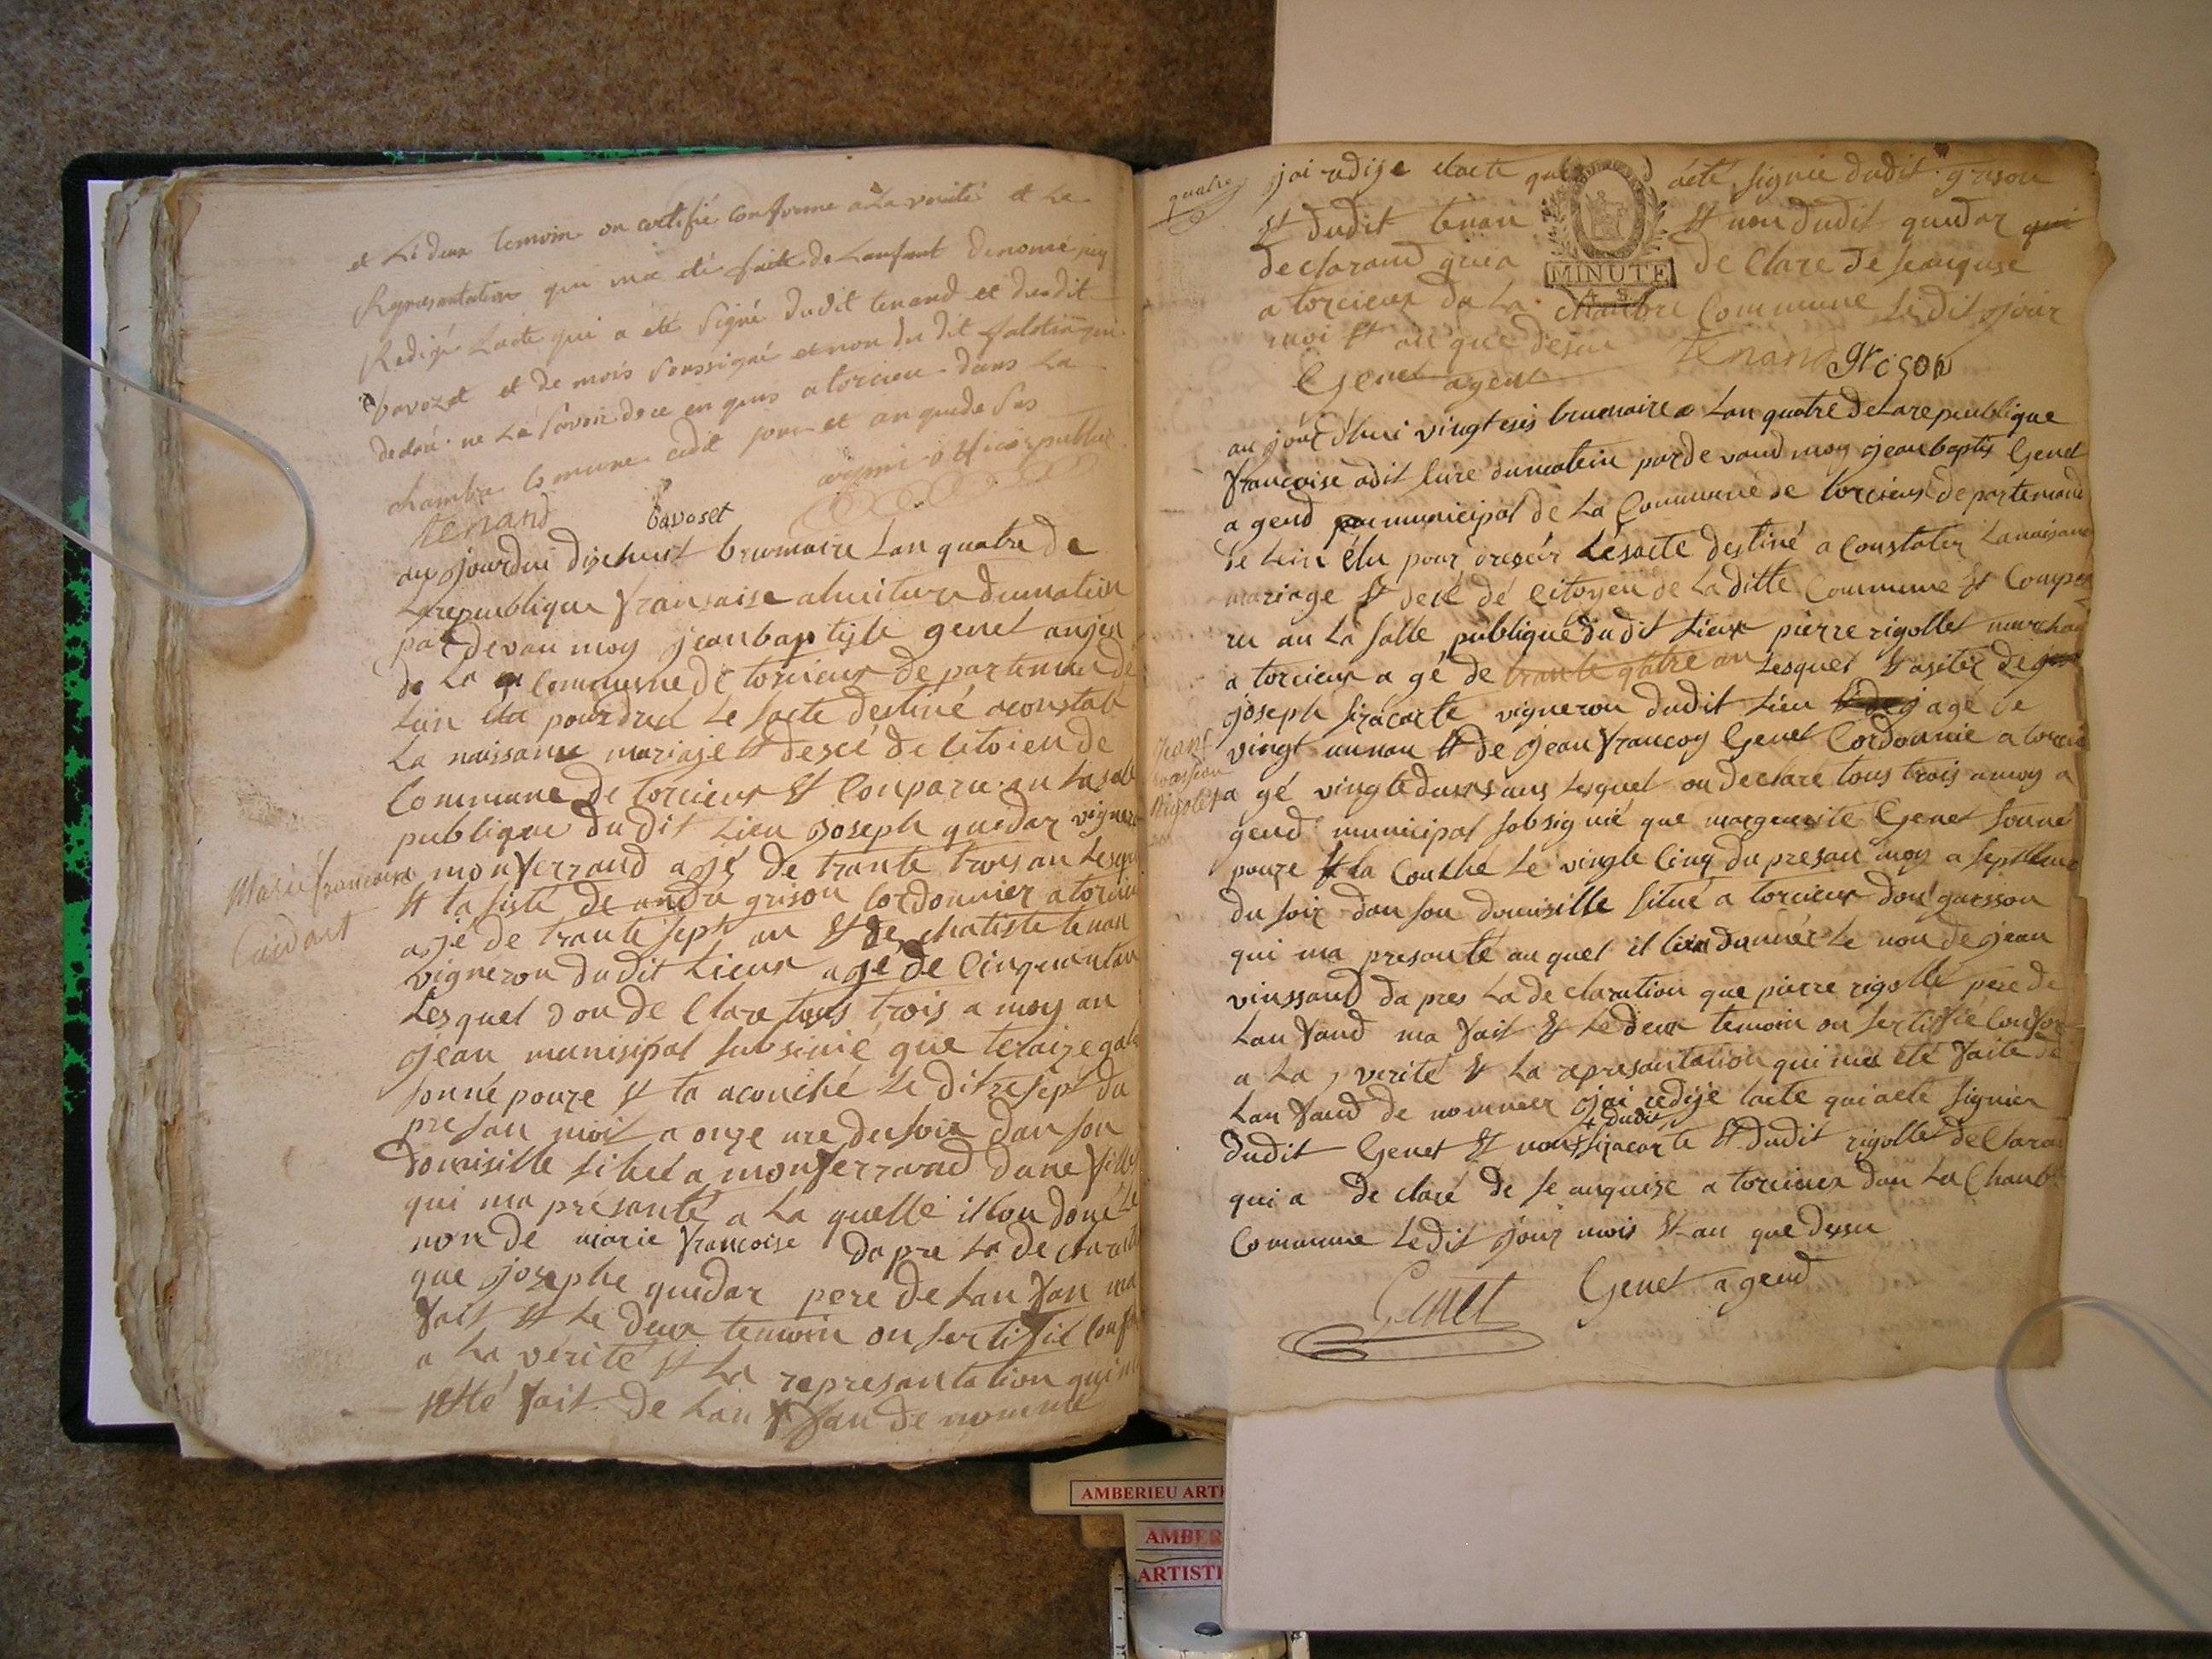 et Le deux temoin on certifié conforme a La verité et La
Representation qui ma eté faite de Lenfant denomé jay
Redigé Lacte qui a été signé dudit tenand et dudit
bavozet et de mois soussigné et non du dit
declaré ne Le savoir de ce enquis a torcieu dans La
chambre Comune cedit jour et an que de sus
officier public
tenand bavoset
aujourdui dixhuit brumaire Lan quatre de
La republique francaise a huit ure du matin
par devan moy jean baptiste genet anjen
de La Commune de torcieux departeman de
Lain elu pour dresé Le sacte destiné a constaté
La naissance mariaje et desce de citoien de
Commune de torcieux et Conparu en La sale
publique du dit Lieu joseph guedar vigneron
a monferrand ajé de trante trois an Lesquel
et tasisté de andré grison Cordonnier a torcieu
ajé de trante sept an et de batiste tenan
vigneron dudit Lieux agé de Cinquantan
Lesquel don de Clare tous trois a moy an
jean munisipal subsinié que teraize
sonne pouze et ta acouché Le ditresept du
presan mois a onze ure du soir dan son
domisille situé a monferrand dune fille
qui ma présanté a La quelle il lon doné Le
non de marie francoise dapre La declaration
que josephe guedar pere de Lan fan ma
fait et Le deux temoin on sertifié Confor
a La vérité et La represantation qui ma
etté fait de Lan fan de nommé
Marie francoise
Guidart
quatre
jai redige Lacte qui a eté signie dudit grison
et dudit tenan et non dudit guedar
declarand qui a de Clare de seanquise
a torcieux da La chanbre Commune Ledit jour
moi et an que desu
MINUTE
tenand grison
Genet agent
au jourdhui vingt sis brumaire Lan quatre de La republique
francoise a dit hure du matin par de vand moy jean baptis Genet
a gend municipal de La Commune de torcieux departemand
de Lein élu pour dreser Lesacte destiné a Constater La naisance
mariage et desé dé Citoyen de La ditte Commune et Compa
ru an La salle publique du dit Lieux pierre rigollet marchan
a torcieux a gé de trante qatre an Lesquel et asiter de
joseph siracarte vigneron dudit Lieu agé de
vingt unnan et de jean francoy Genet Cordonnie a torcie
a gé vingte deus ans Lesquel on declaré tous trois a moy a
gend municipal sobsignié que marguerite Genet sonne
pouze et ta Couché Le vingte Cinq du presan moy a septeure
du soir dan son domisille situé a torcieux don garsson
qui ma presanté auquel il lon donner Le non de jean
vinssand da pres La de claration que pierre rigollé pere de
Lan fand ma fait et Le deux temoin on sertiffié Confor
a La verité et La represantation qui ma eté faite de
Lan fand de nommer jai redije Lacte qui a eté signier
dudit Genet et non dudit siracarte et dudit rigollet declara
qui a de claré de se anquise a torcieux dan La Chanb
Commune Ledit jour mois et an que desu
Genet Genet a gend
jean
vinssan
Rigolet
AMBERIEU ARTI
AMBER
ARTISTI